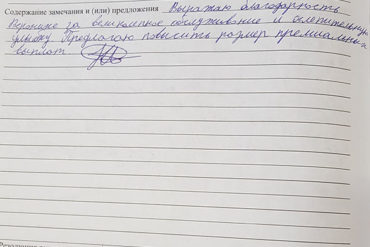 Содержание замечания и (или) предложения Выражаю благодарность
Веронике за великолепное обслуживание и ослепительную
улыбку. Предлагаю повысить размер премиальных
выплат